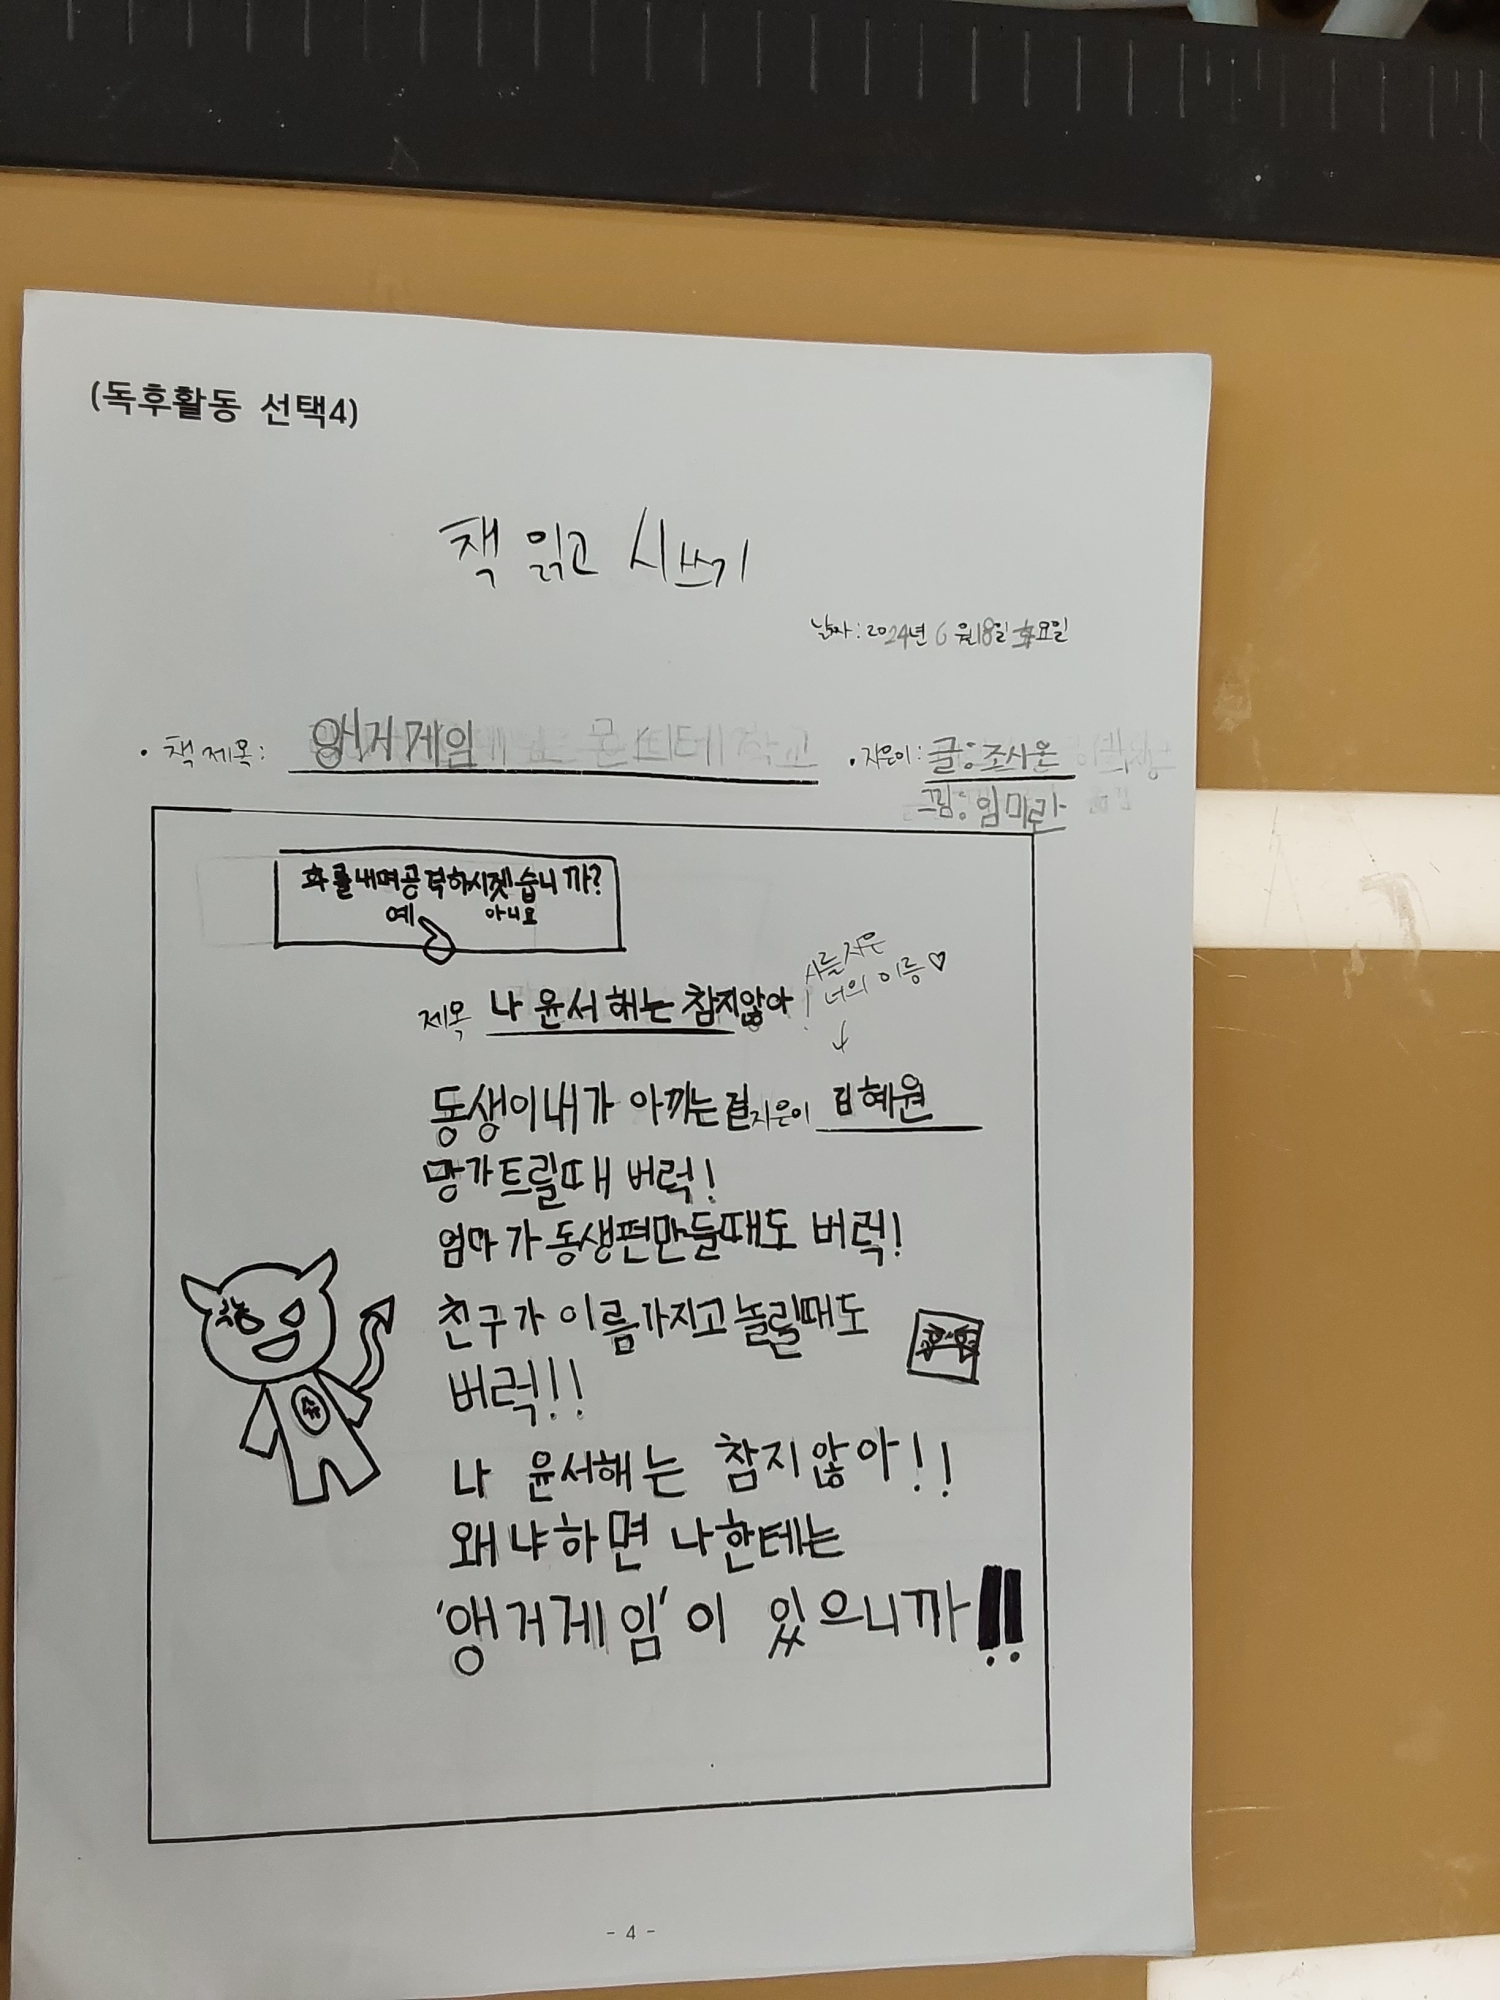 (독후활동 선택4)
책 읽고 시쓰기
날짜: 2024년 6월 18일 화요일
• 책 제목: 앵거게임
• 지은이: 글: 조시온
그림: 임미란
화를내며공격하시겟습니까?
예 아니요
시를지은
너의 이름♡
제목 나 윤서해는 참지않아!
↓
동생이내가 아끼는걸
지은이 김혜원
망가트릴때 버럭!
엄마가동생편만들때도 버럭!
친구가 이름가지고놀릴때도
버럭!!
나 윤서해는 참지않아!!
왜냐하면 나한테는
'앵거게임'이 있으니까!!
- 4 -